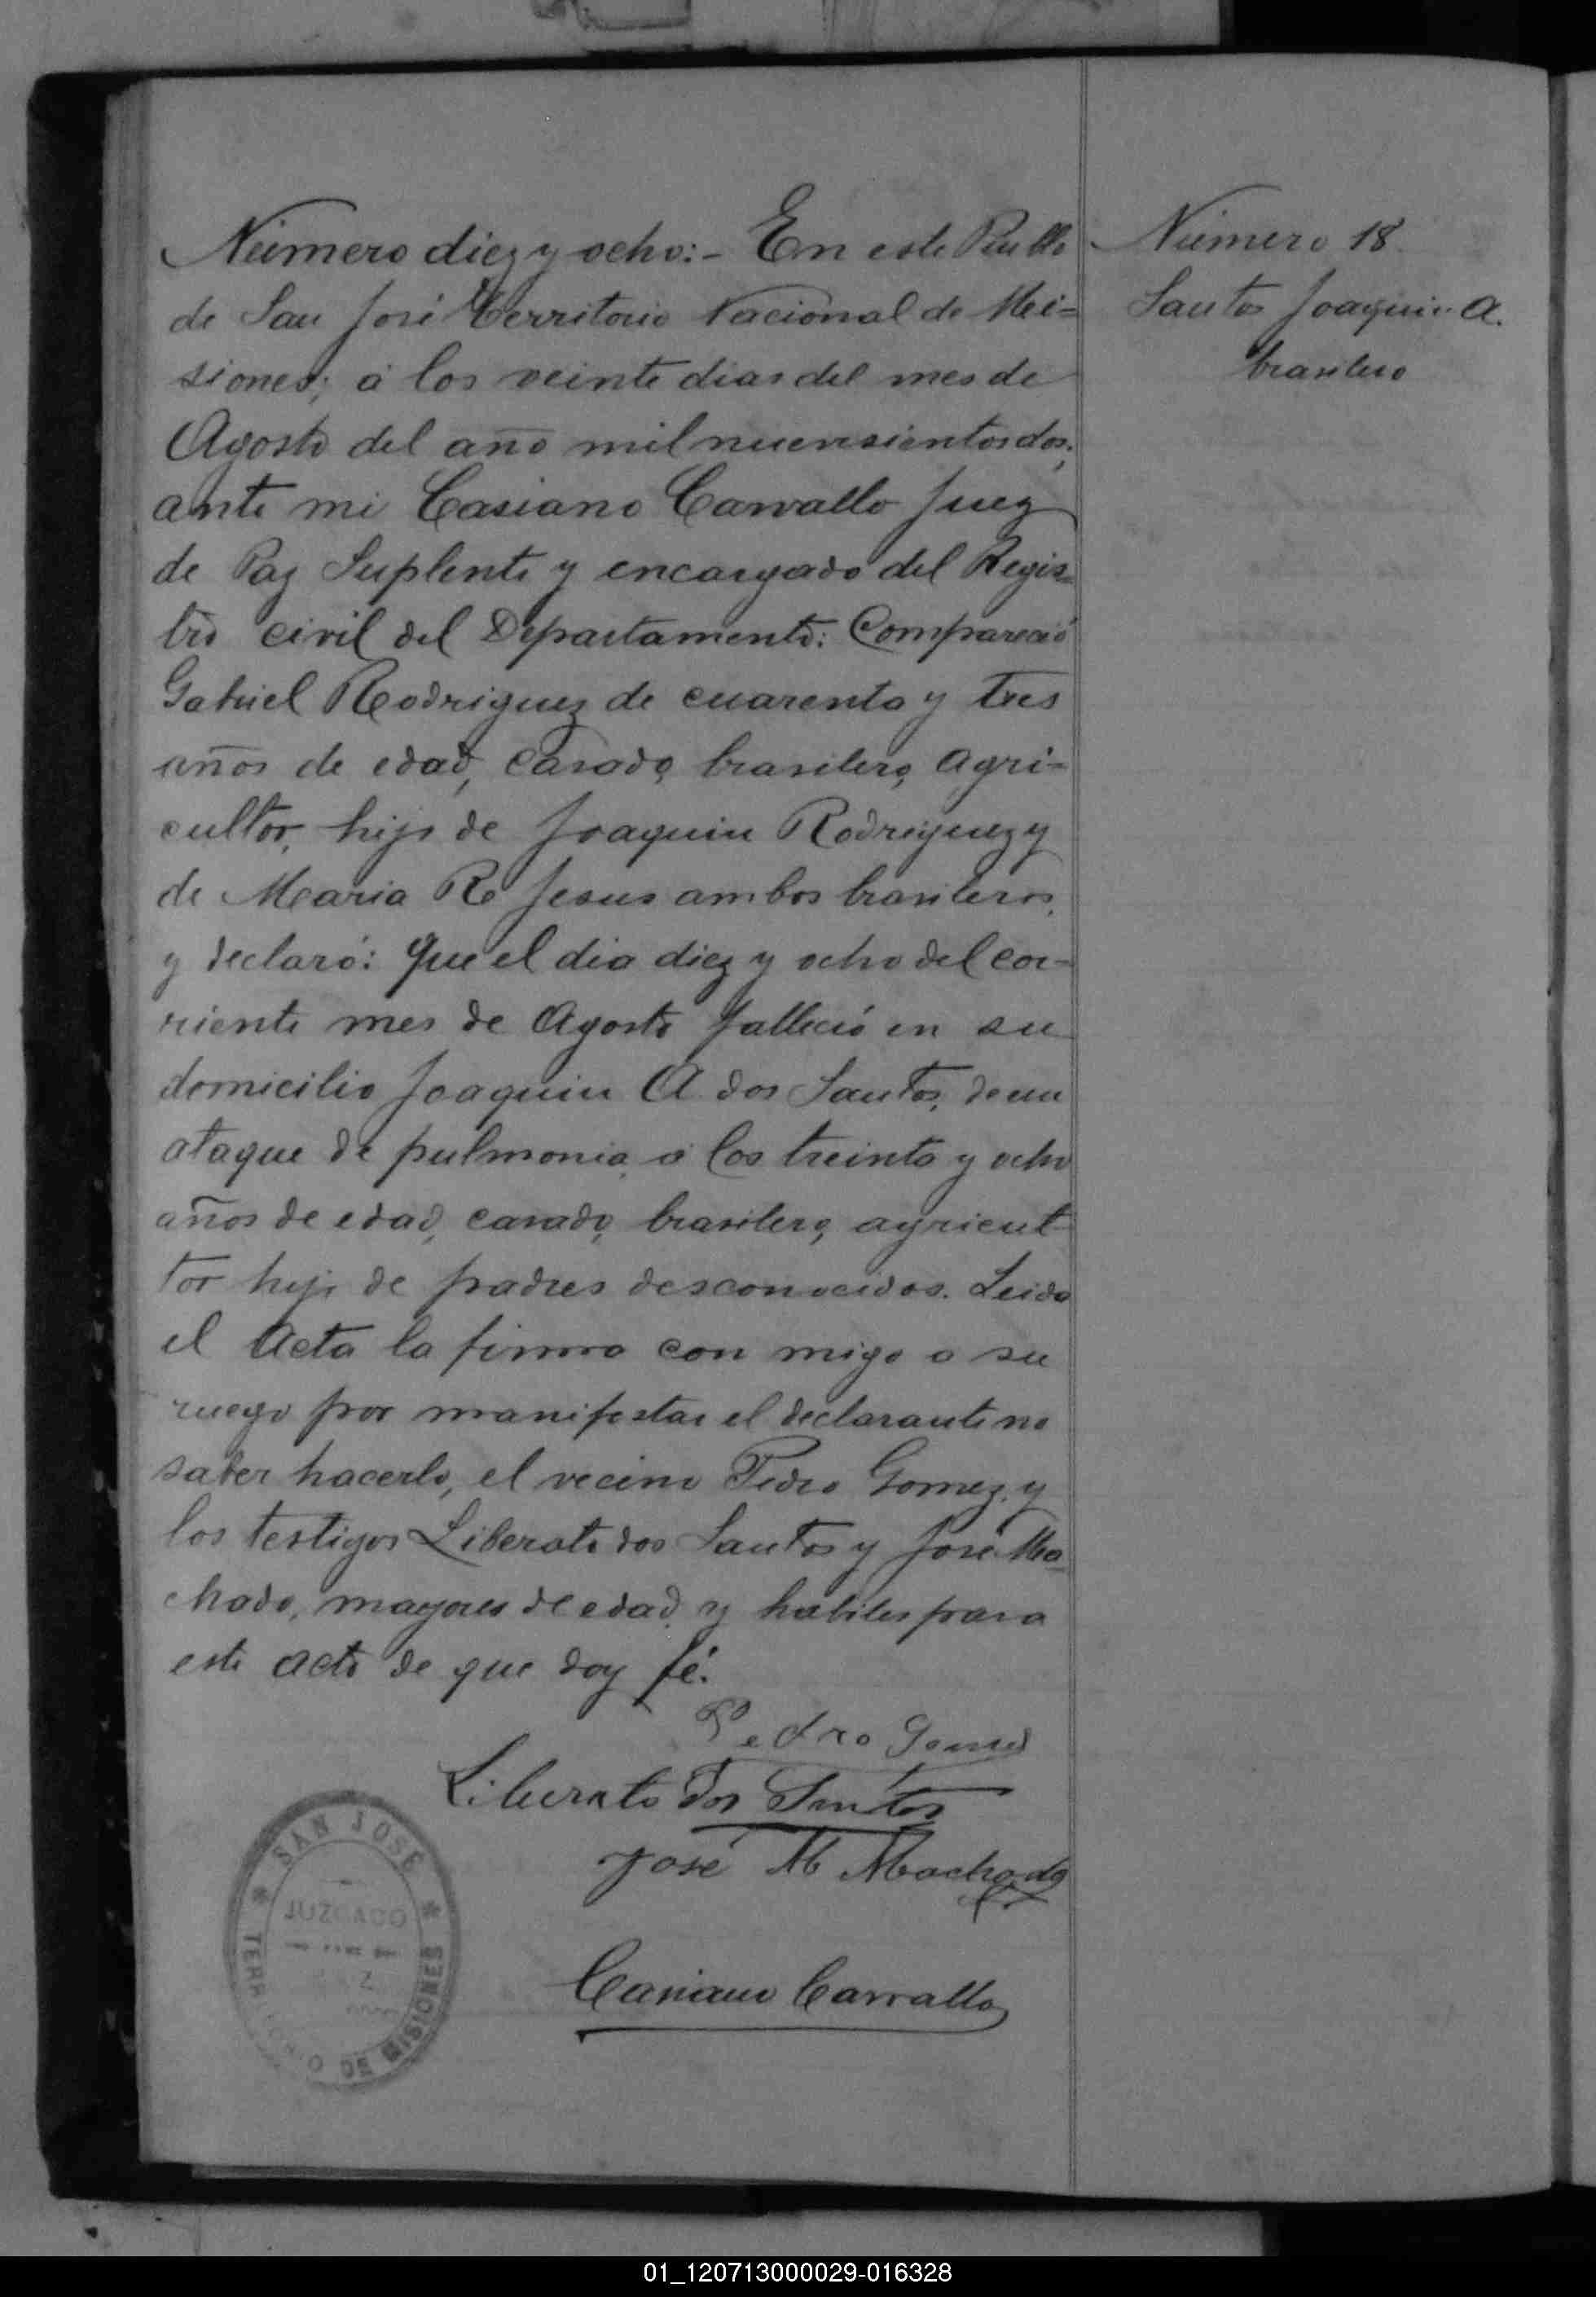 Número diez y ocho:- En este Pueblo
de San José Territorio Nacional de Mi=
siones; á los veinte dias del mes de
Agosto del año mil nuevesientos dos;
ante mi Casiano Carvallo Juez
de Paz Suplente y encargado del Regis=
tro civil del Departamento: Compareció
Gabriel Rodriguez de cuarenta y tres
años de edad, casado, brasilero, agri=
cultor, hijo de Joaquin Rodriguez y
de Maria R Jesus ambos brasileros,
y declaró: Que el dia diez y ocho del cor=
riente mes de Agosto falleció en su
domicilio Joaquin A. dos Santos, de un
ataque de pulmonia á los treinta y ocho
años de edad, casado, brasilero, agricul-
tor hijo de padres desconocidos. Leida
el Acta la firma con migo a su
ruego por manifestar el declarante no
saber hacerlo, el vecino Pedro Gomez, y
los testigos Liberato dos Santos y José Ma
chado, mayores de edad y habiles para
este acto de que doy fé.
Pedro Gomes
Liberato Dos Santos
José M Machado
Casiano Carvallo
Número 18.
Santos Joaquin A.
brasilero
SAN JOSÉ
JUZGADO
TERRITORIO DE MISIONES
01_120713000029-016328